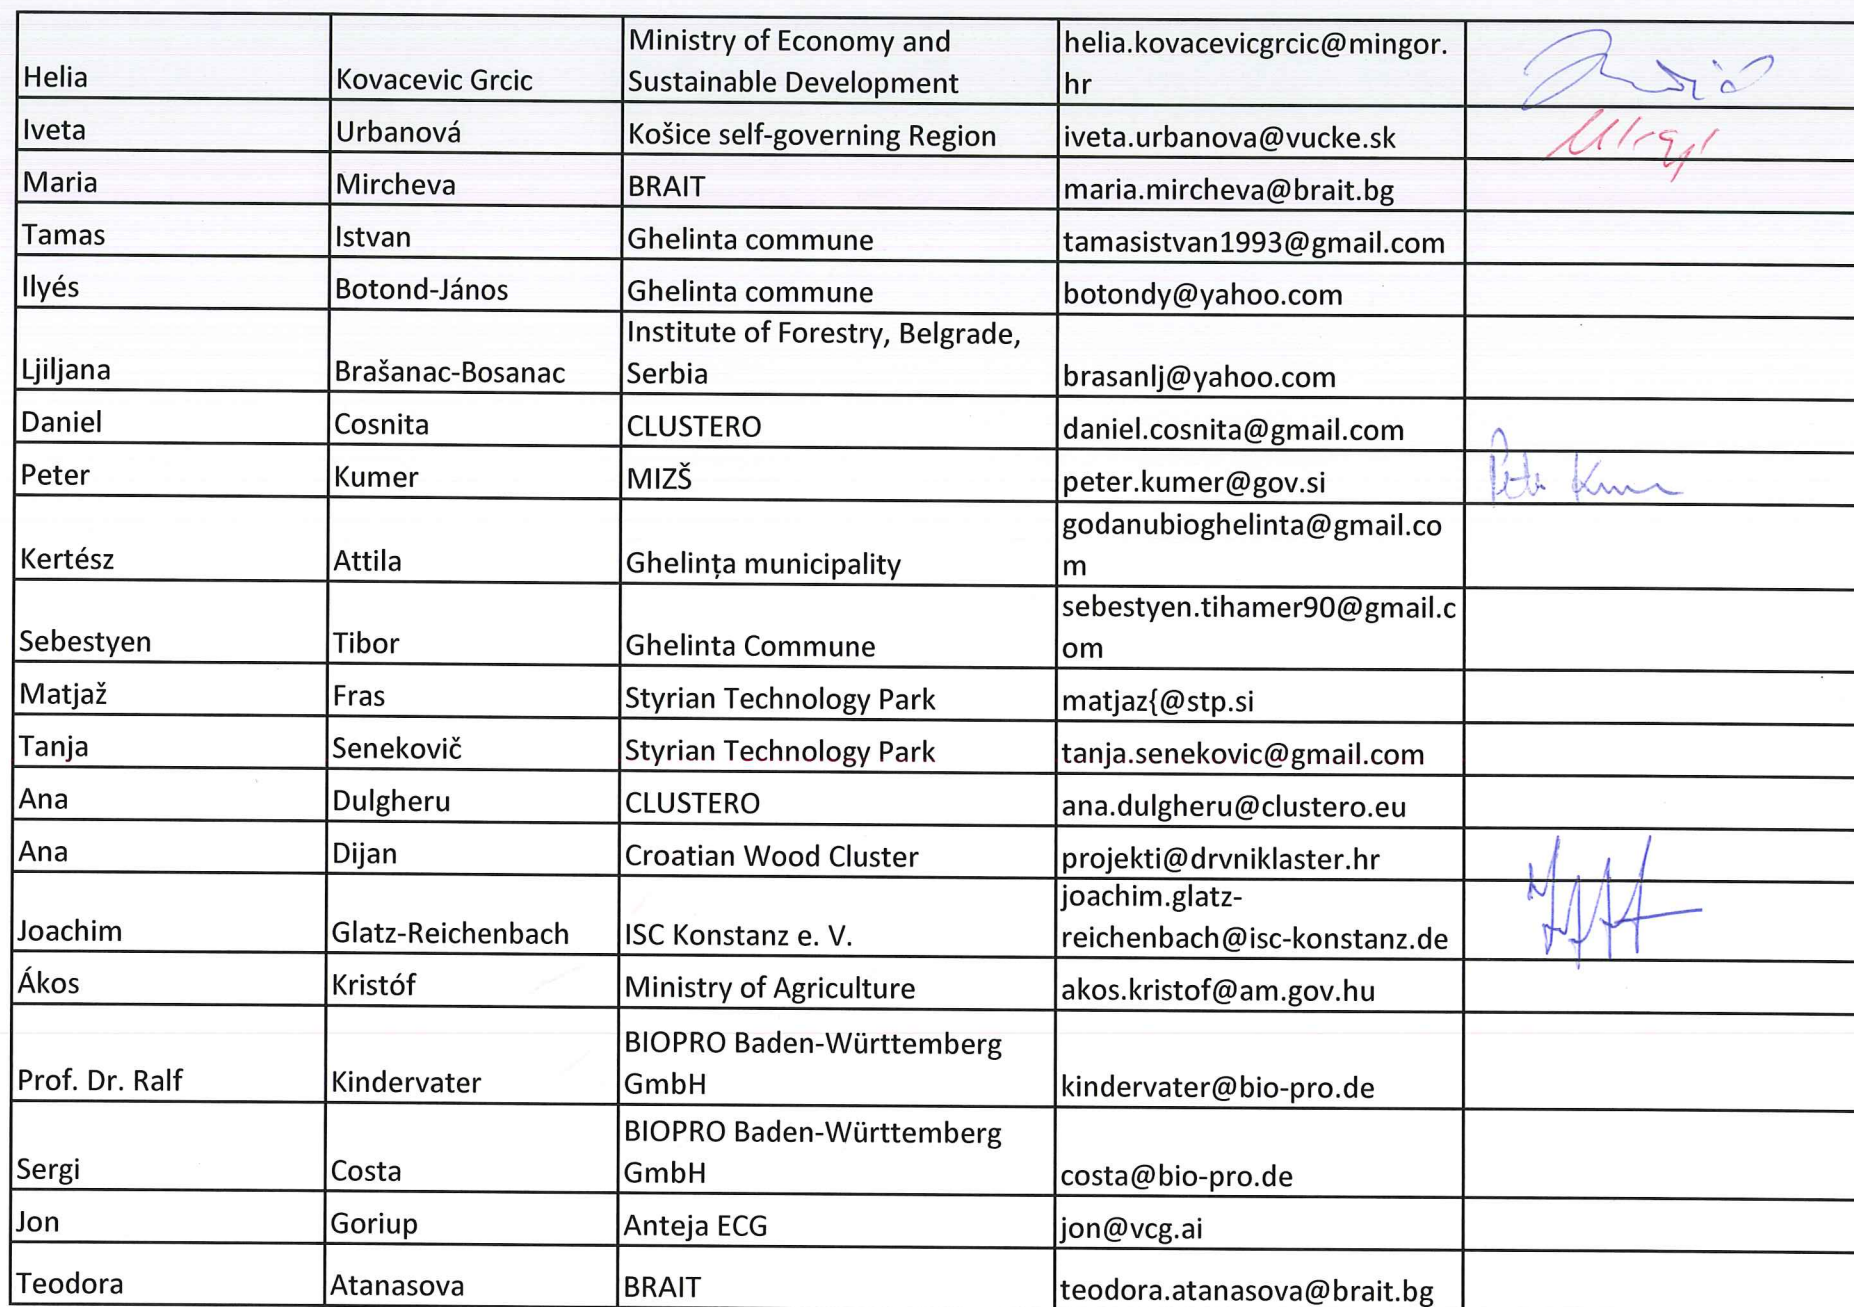 Helia Kovacevic Grcic Ministry of Economy and Sustainable Development helia.kovacevicgrcic@mingor.hr
Iveta Urbanová Košice self-governing Region iveta.urbanova@vucke.sk
Maria Mircheva BRAIT maria.mircheva@brait.bg
Tamas Istvan Ghelinta commune tamasistvan1993@gmail.com
Ilyés Botond-János Ghelinta commune botondy@yahoo.com
Ljiljana Brašanac-Bosanac Institute of Forestry, Belgrade, Serbia brasanlj@yahoo.com
Daniel Cosnita CLUSTERO daniel.cosnita@gmail.com
Peter Kumer MIZŠ peter.kumer@gov.si
Kertész Attila Ghelința municipality godanubioghelinta@gmail.com
Sebestyen Tibor Ghelinta Commune sebestyen.tihamer90@gmail.com
Matjaž Fras Styrian Technology Park matjaz{@stp.si
Tanja Senekovič Styrian Technology Park tanja.senekovic@gmail.com
Ana Dulgheru CLUSTERO ana.dulgheru@clustero.eu
Ana Dijan Croatian Wood Cluster projekti@drvniklaster.hr
Joachim Glatz-Reichenbach ISC Konstanz e. V. joachim.glatz-reichenbach@isc-konstanz.de
Ákos Kristóf Ministry of Agriculture akos.kristof@am.gov.hu
Prof. Dr. Ralf Kindervater BIOPRO Baden-Württemberg GmbH kindervater@bio-pro.de
Sergi Costa BIOPRO Baden-Württemberg GmbH costa@bio-pro.de
Jon Goriup Anteja ECG jon@vcg.ai
Teodora Atanasova BRAIT teodora.atanasova@brait.bg